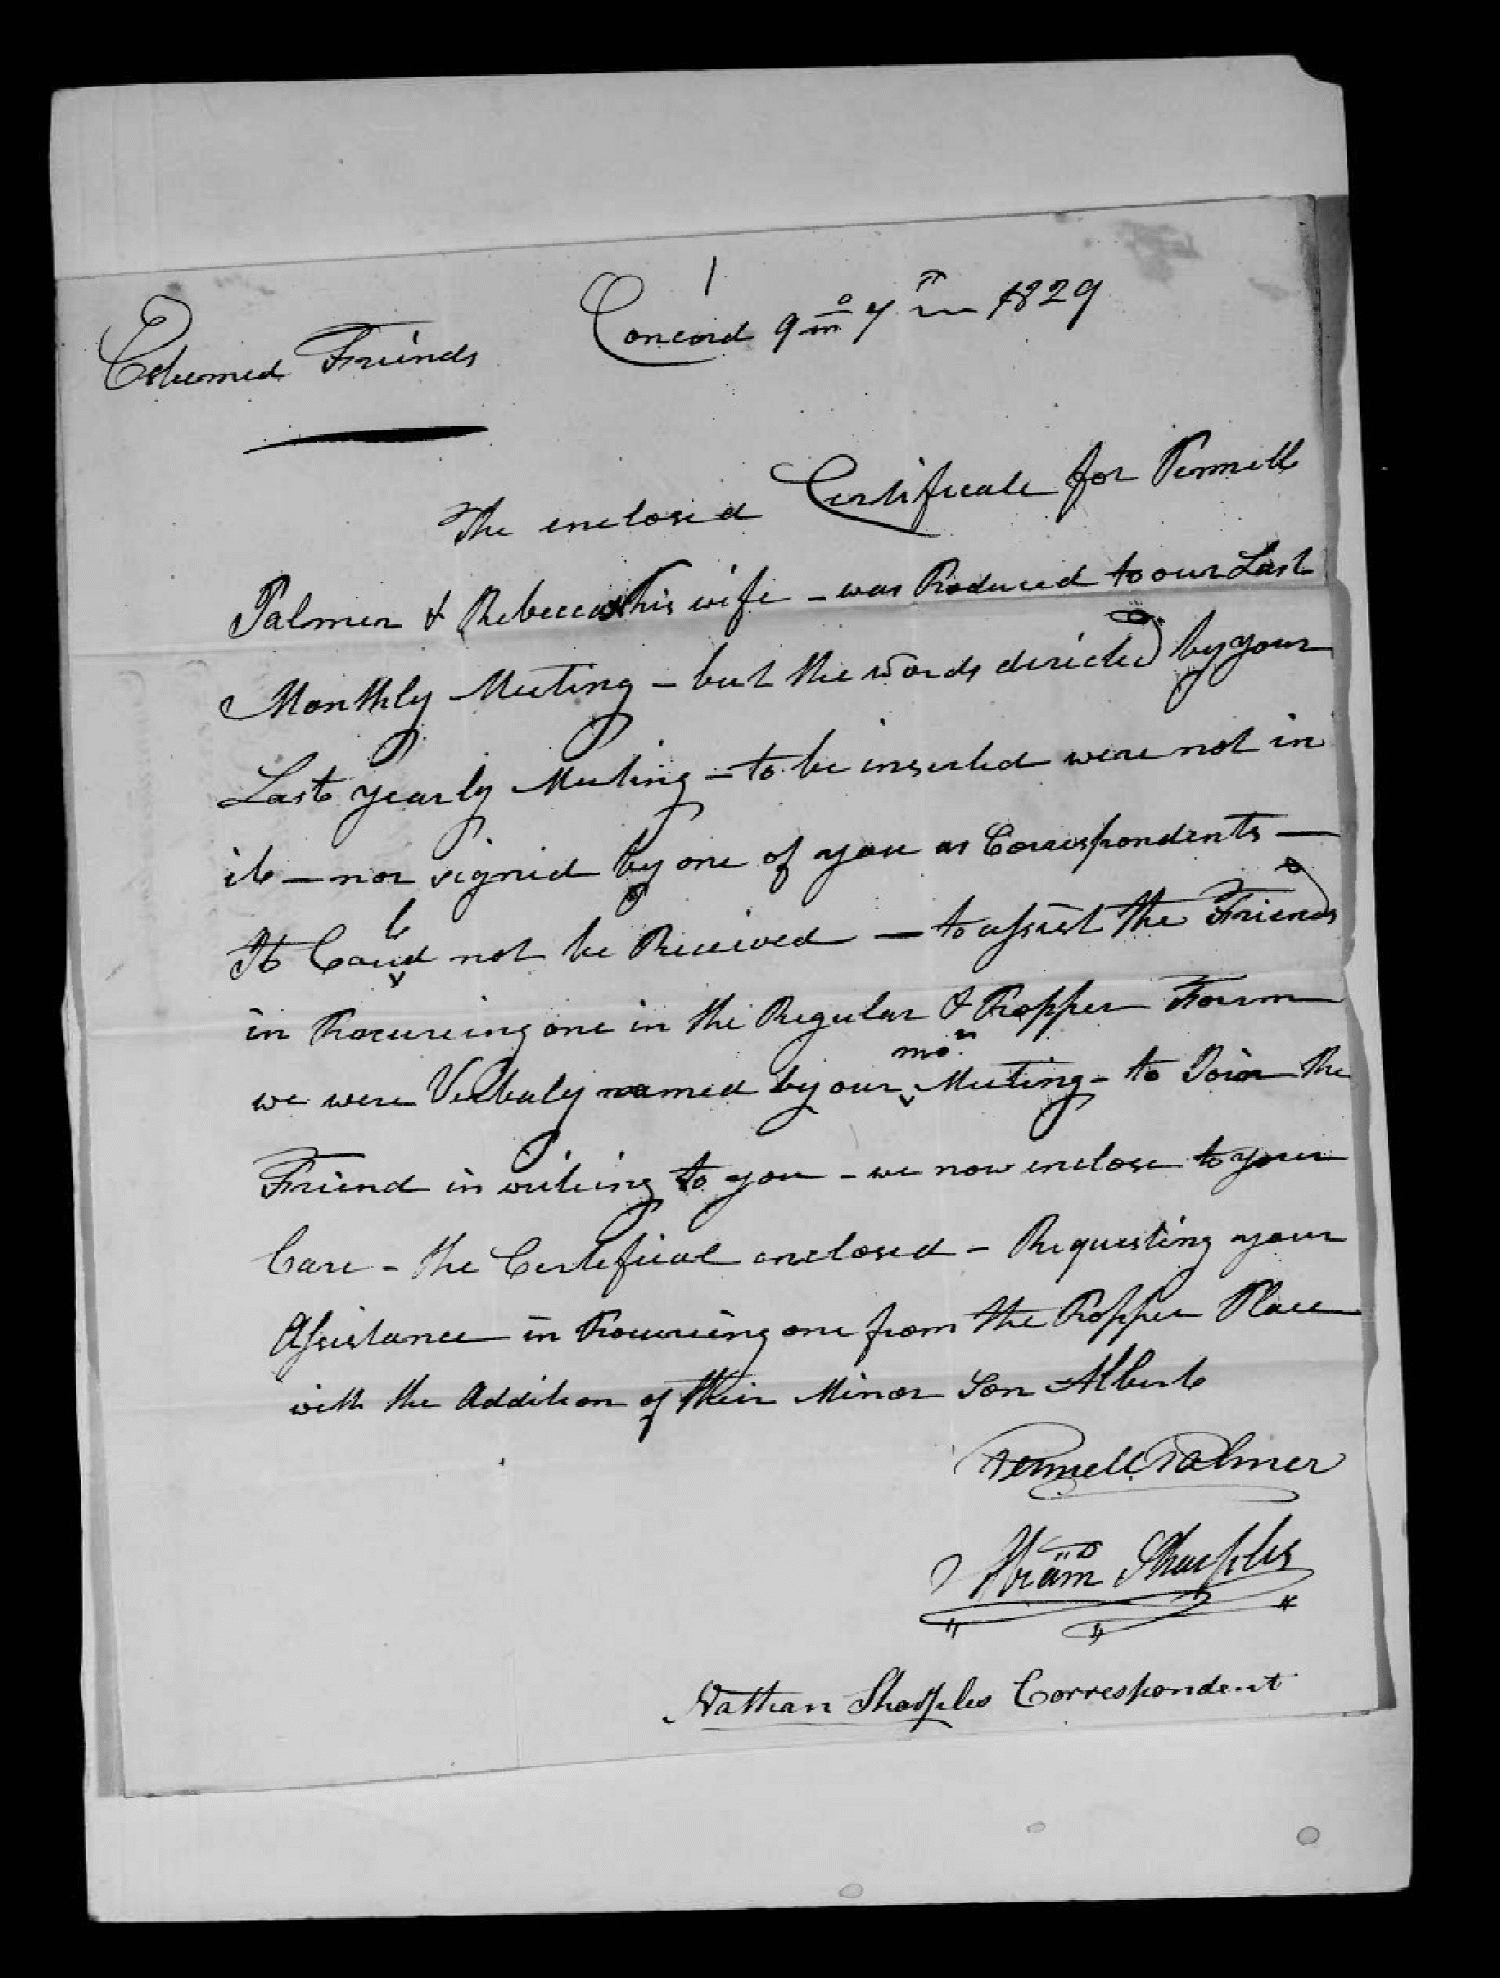 Concord 9mo 7th 1829
Esteemed Friends
The enclosed Certificate for Pennell
Palmer & Rebecca his wife - was Produced to our Last
Monthly Meeting - but the words directed by your
Last yearly Meeting - to be inserted were not in
it - nor signed by one of you as Correspondents -
It Could not be Received - to assist the Friends
in Procureing one in the Regular & Propper Form
we were Verbaly named by our mo.n Meeting - to Join the
Friend in writing to you - we now enclose to your
Care - the Certificat enclosed - Requesting your
Assistance in Procureing one from the Propper Place
with the Addition of their Minor Son Albert
Pennell Palmer
Abram Sharples
Nathan Sharples Correspondent